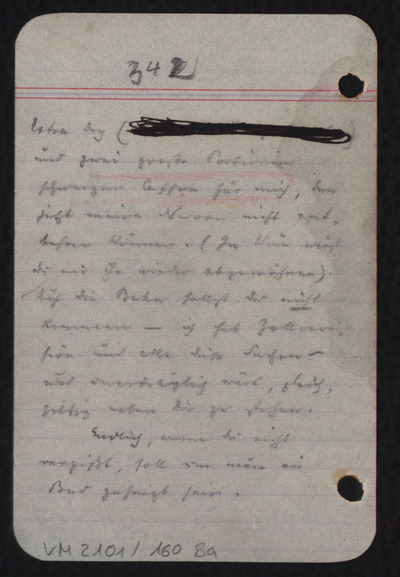 342
Extra Dry (
und zwei große Portionen
schwarzen Caffee für mich, den
jetzt meine Nerven nicht ent-
behren können. (In Wien wirst
du mir ihn wieder abgewöhnen).
Auf die Bahn sollst du nicht
kommen — ich hab Zollrevi-
sion und alle diese Sachen —
und unerträglich wärs, gleich-
giltig neben dir zu stehen.
Endlich, wenn du nicht
vergißt, soll von mein
Bad geheizt sein.
VM 2101 / 160 Ba